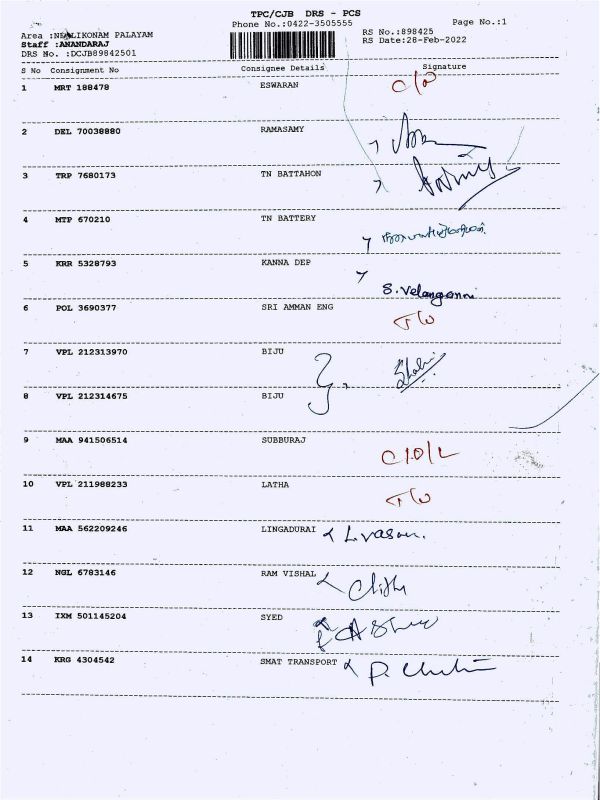 TPC/CJB DRS - PCS
Phone No.:0422-3505555
Page No.:1
Area :NEELIKONAM PALAYAM
RS No.:898425
Staff :ANANDARAJ
RS Date:28-Feb-2022
DRS No. :DCJB89842501
S No Consignment No Consignee Details Signature
1 MRT 188478 ESWARAN
2 DEL 70038880 RAMASAMY
3 TRP 7680173 TN BATTAHON
4 MTP 670210 TN BATTERY
5 KRR 5328793 KANNA DEP
S. Velanganni
6 POL 3690377 SRI AMMAN ENG
7 VPL 212313970 BIJU
8 VPL 212314675 BIJU
9 MAA 941506514 SUBBURAJ
C/O/L
10 VPL 211988233 LATHA
11 MAA 562209246 LINGADURAI
12 NGL 6783146 RAM VISHAL
13 IXM 501145204 SYED
14 KRG 4304542 SMAT TRANSPORT